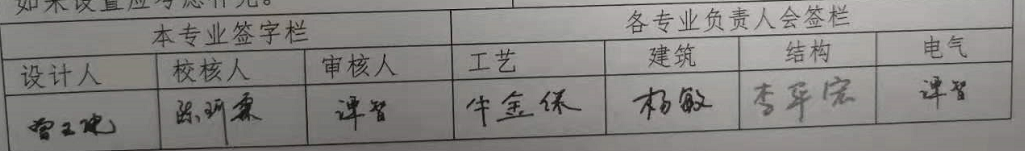 如果设置应考虑补充。
本专业签字栏 各专业负责人会签栏
设计人 校核人 审核人 工艺 建筑 结构 电气
谭智 牛金保 杨敏 李平宏 谭智